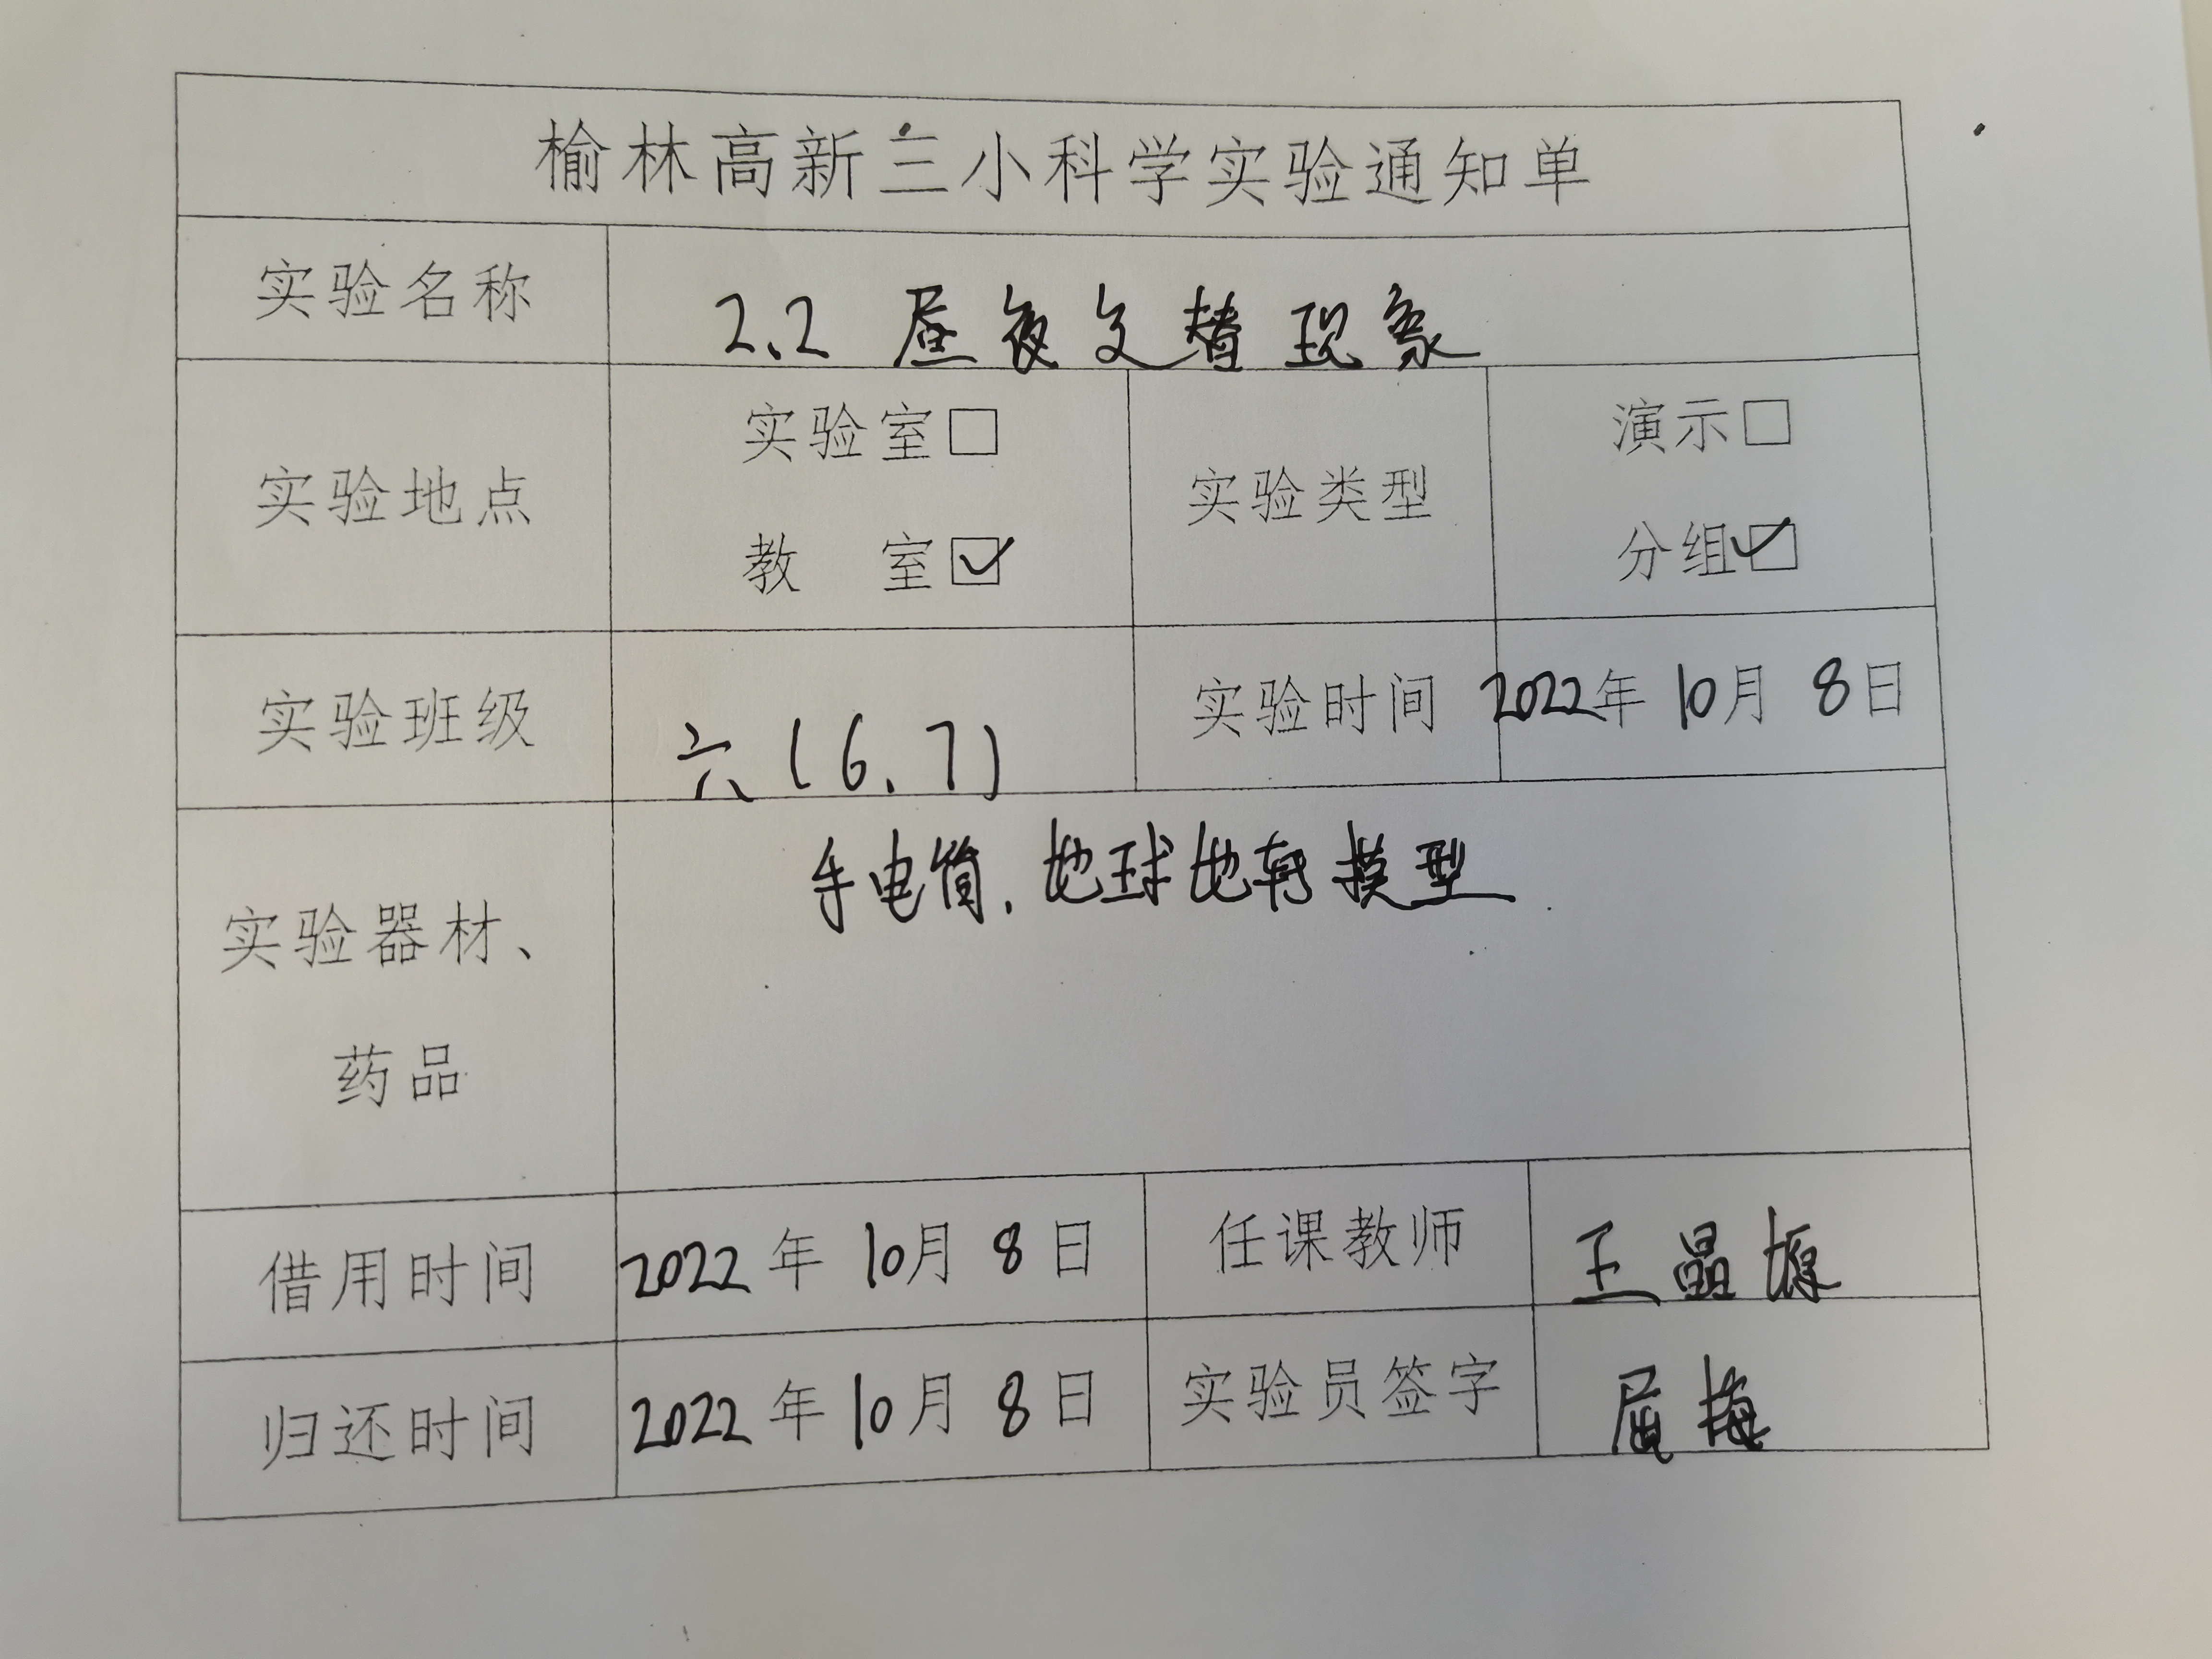 榆林高新三小科学实验通知单
实验名称 2.2 昼夜交替现象
实验地点 实验室□ 教 室☑ 实验类型 演示□ 分组☑
实验班级 六(6、7) 实验时间 2022年10月8日
实验器材、药品 手电筒、地球地转模型
借用时间 2022年10月8日 任课教师 王晶
归还时间 2022年10月8日 实验员签字 屈梅